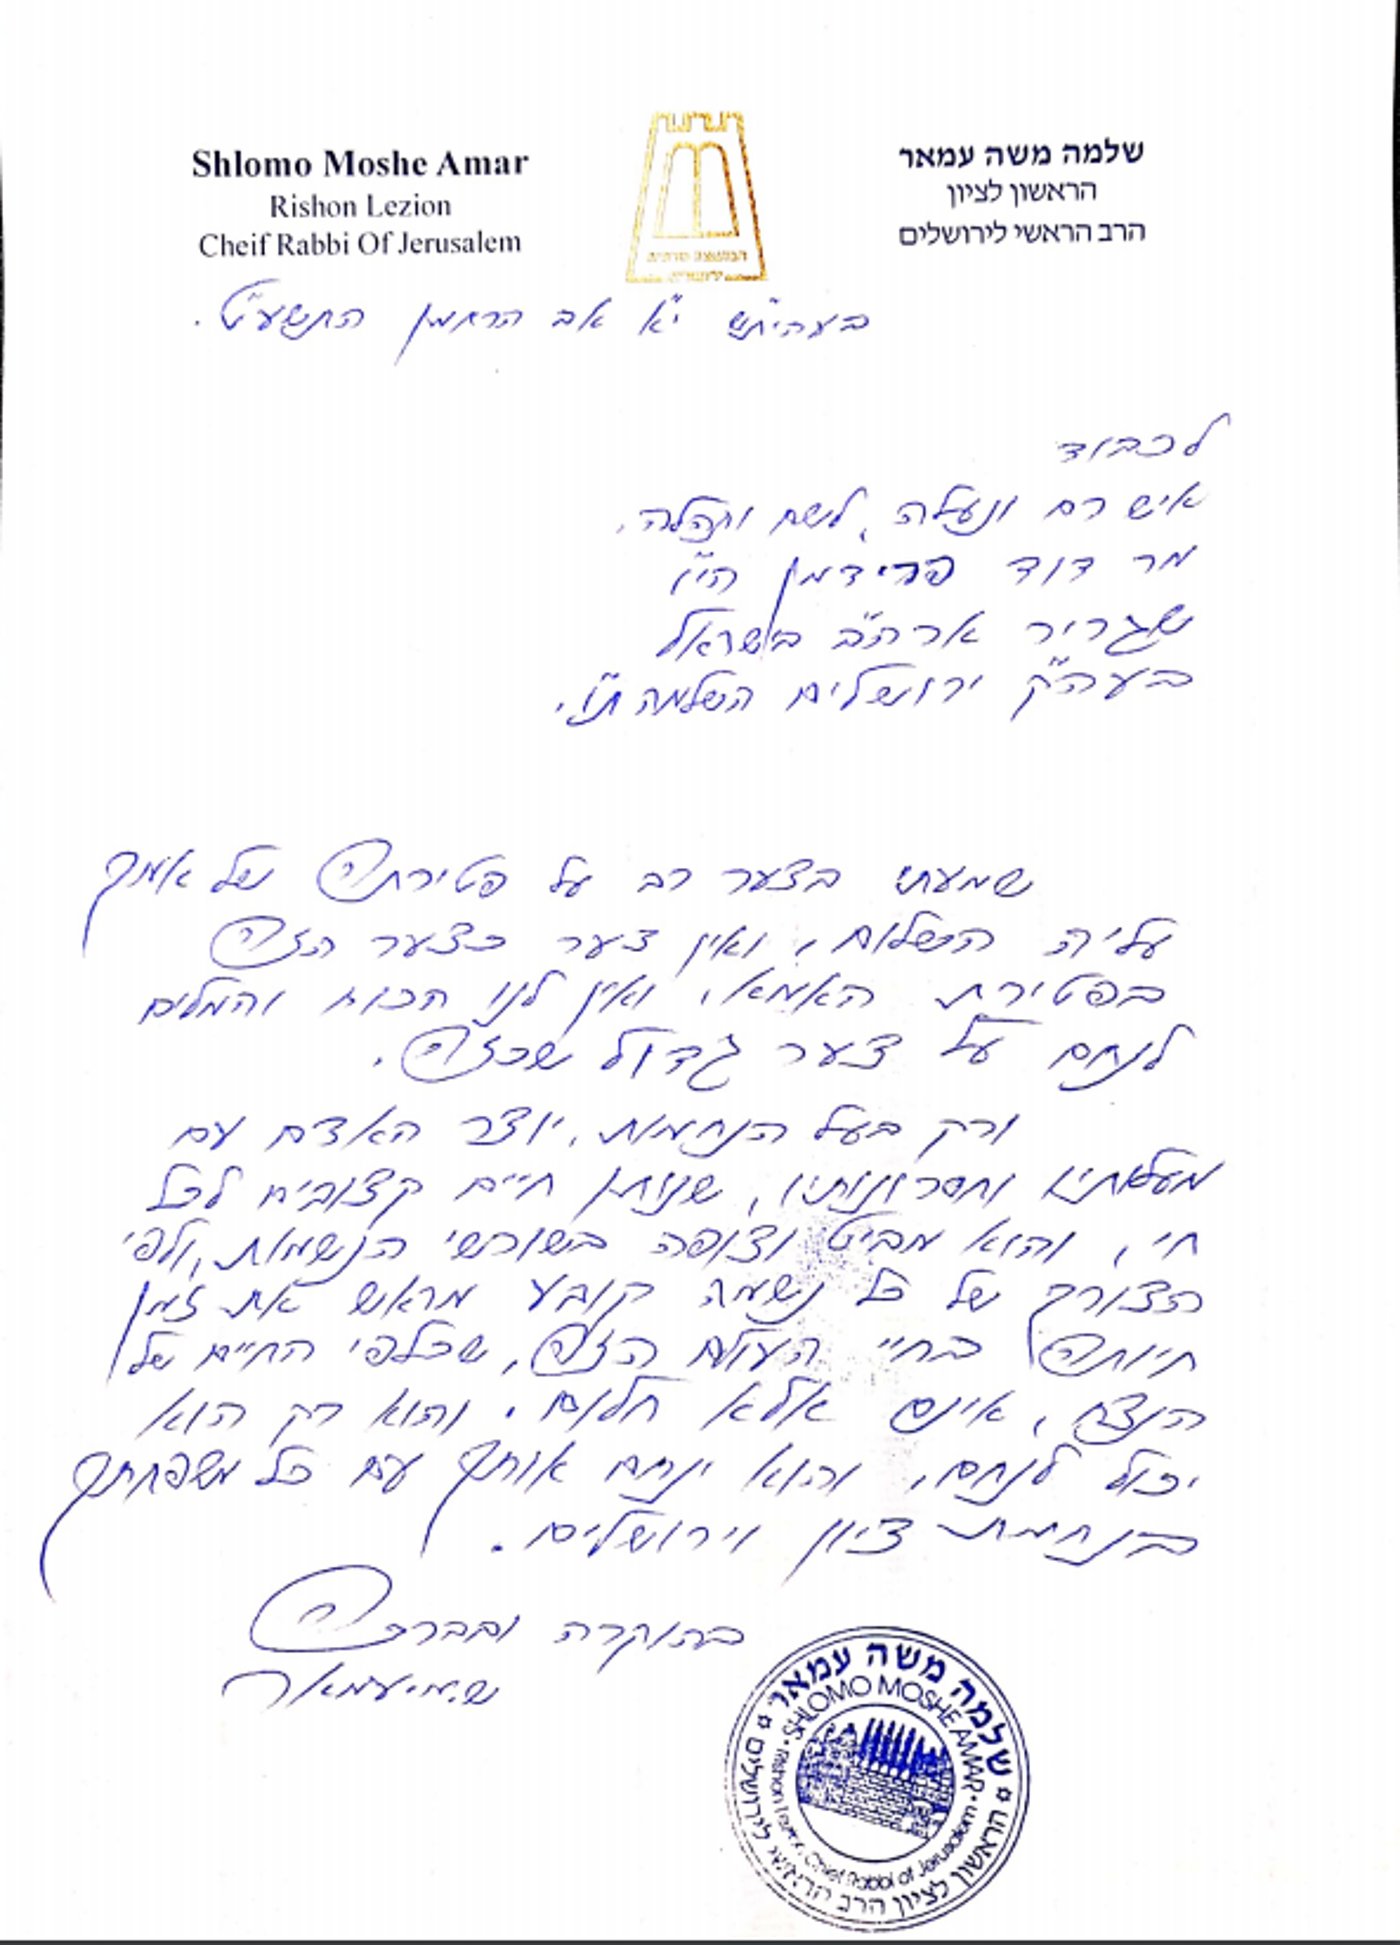 Shlomo Moshe Amar
Rishon Lezion
Cheif Rabbi Of Jerusalem
שלמה משה עמאר
הראשון לציון
הרב הראשי לירושלים
בעהי"ת י"א אב הרחמן התשע"ט.
לכבוד
איש רם ונעלה, לשם ותהלה,
מר דוד פרידמן הי"ו
שגריר ארה"ב בישראל
בעה"ק ירושלים השלמה ת"ו.
שמעתי בצער רב על פטירתה של אמך
עליה השלום, ואין צער כצער הזה
בפטירת האמא, ואין לנו הכוח והמלים
לנחם על צער גדול שכזה.
ורק בעל הנחמות, יוצר האדם עם
מעלותיו וחסרונותיו, שנותן חיים קצובים לכל
חי, והוא מביט וצופה בשורשי הנשמות, ולפי
הצורך של כל נשמה קובע מראש את זמן
חיותה בחיי העולם הזה, שכלפי החיים של
הנצח, אינם אלא חלום. והוא רק הוא
יכול לנחם, והוא ינחם אותך עם כל משפחתך
בנחמת ציון וירושלים.
בהוקרה ובברכה
ש.מ.עמאר
שלמה משה עמאר
SHLOMO MOSHE AMAR
Chief Rabbi of Jerusalem
הראשון לציון הרב הראשי לירושלים